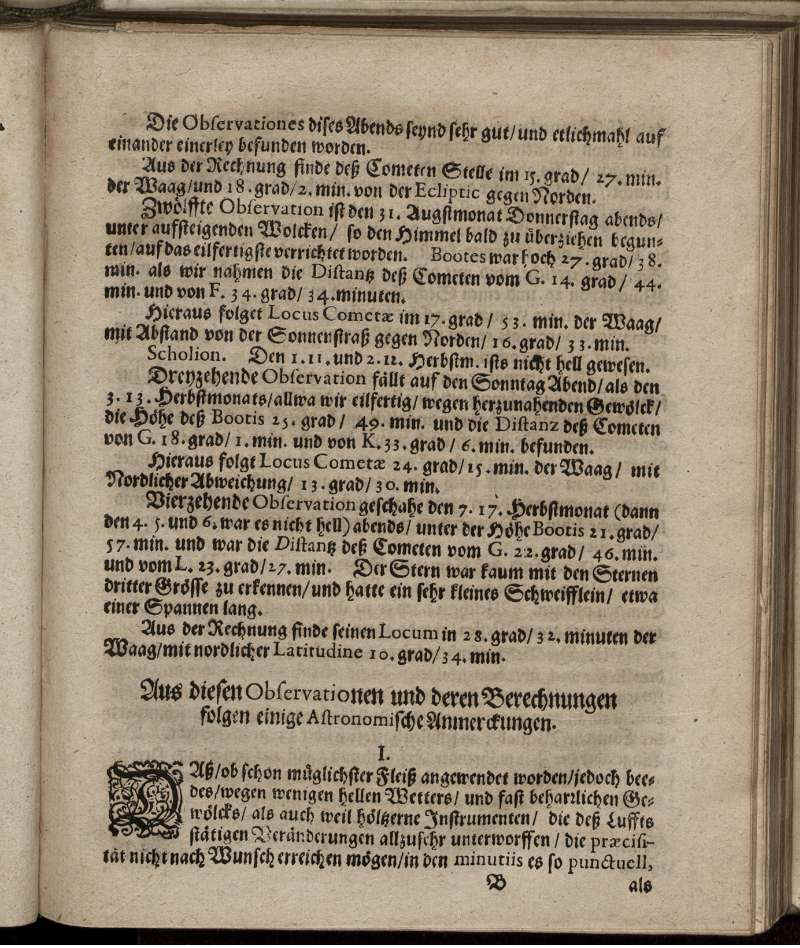 Die Observationes dises Abends seynd sehr gut/und etlichmahl auf
einander einerley befunden worden.
Aus der Rechnung finde deß Cometen Stelle im 15.grad/ 27.min.
der Waag/und 18.grad/2.min.von der Ecliptic gegen Norden.
Zwölffte Observation ist den 31. Augstmonat Donnerstag abends/
unter aufsteigenden Wolcken/ so den Himmel bald zu überziehen begun-
ten/auf das eilfertigste verrichtet worden. Bootes war hoch 27.grad/38.
min. als wir nahmen die Distantz deß Cometen vom G. 14. grad/ 44.
min.und von F. 34.grad/34.minuten.
Hieraus folget Locus Cometæ im 17.grad/ 53. min. der Waag/
mit Abstand von der Sonnenstraß gegen Norden/16.grad/ 33.min.
Scholion. Den 1.11.und 2.12. Herbstm.ists nicht hell gewesen.
Dreyzehende Observation fällt auf den Sonntag Abend/als den
3.13.Herbstmonats/allwa wir eilfertig/wegen herzunahenden Gewölck/
die Höhe deß Bootis 25.grad/ 49.min. und die Distanz deß Cometen
von G.18.grad/1.min. und von K.33.grad/6.min. befunden.
Hieraus folgt Locus Cometæ 24. grad/15.min. der Waag/ mit
Nordlicher Abweichung/ 13.grad/30.min.
Vierzehende Observation geschahe den 7. 17. Herbstmonat (dann
den 4. 5.und 6.war es nicht hell)abends/unter der Höhe Bootis 21.grad/
57.min. und war die Distantz deß Cometen vom G. 22.grad/ 46.min.
und vom L. 23.grad/27.min. Der Stern war kaum mit den Sternen
dritter Grösse zu erkennen/und hatte ein sehr kleines Schweifflein/ etwa
einer Spannen lang.
Aus der Rechnung finde seinen Locum in 28.grad/32.minuten der
Waag/mit nordlicher Latitudine 10.grad/34.min.
Aus diesen Observationen und deren Berechnungen
folgen einige Astronomische Anmerckungen.
I.
DAß/ob schon müglichster Fleiß angewendet worden/jedoch bee-
des/wegen wenigen hellen Wetters/ und fast beharrlichen Ge-
wölcks/ als auch weil höltzerne Instrumenten/ die deß Luffts
stätigen Veränderungen allzusehr unterworffen/die præcisi-
tät nicht nach Wunsch erreichen mögen/in den minutiis es so punctuell,
B als